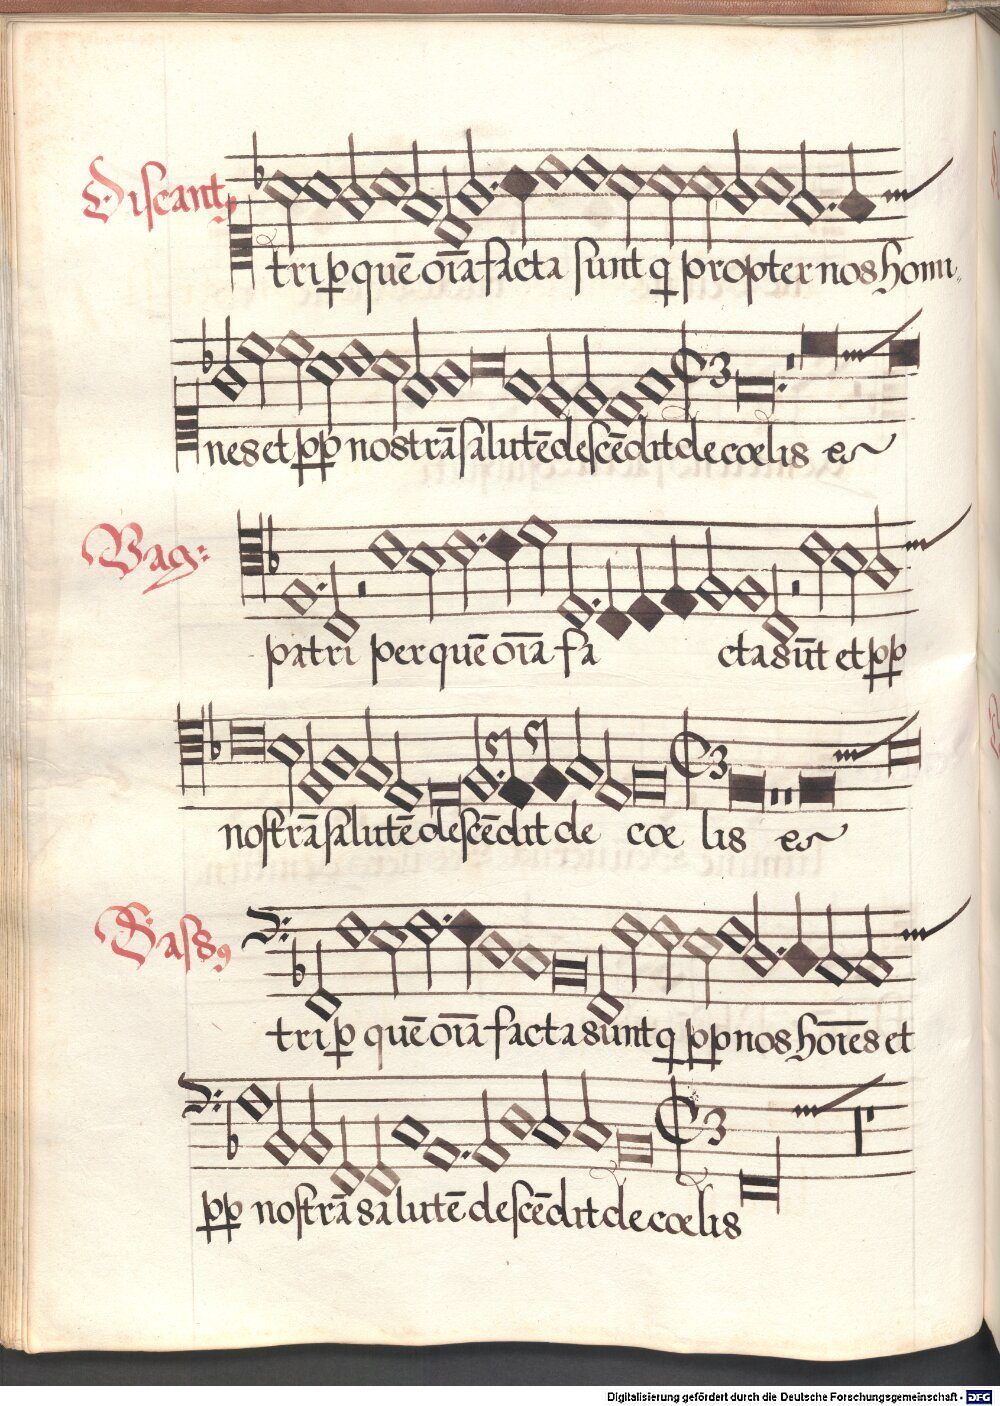 Discant9
tri p̲ quē oīa facta sunt q̲ propter nos homi„
nes et p̲p̲ nostrā salutē descēdit de cœlis es
Vag:
patri per quē oīa fa cta sūt et p̲p̲
nostrā salutē descēdit de cœ lis es
Bass9
tri p̲ quē oīa facta sunt q̲ p̲p̲ nos hoīes et
p̲p̲ nostrā salutē descēdit de cœlis
Digitalisierung gefördert durch die Deutsche Forschungsgemeinschaft - DFG